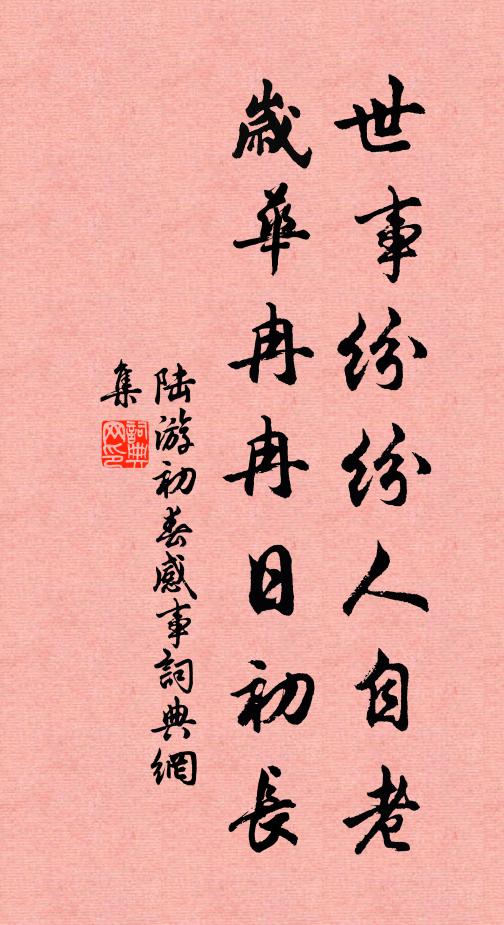 世事紛紛人自老
歲華冉冉日初長
陆游初春感事詞典網
集
詞典
网印